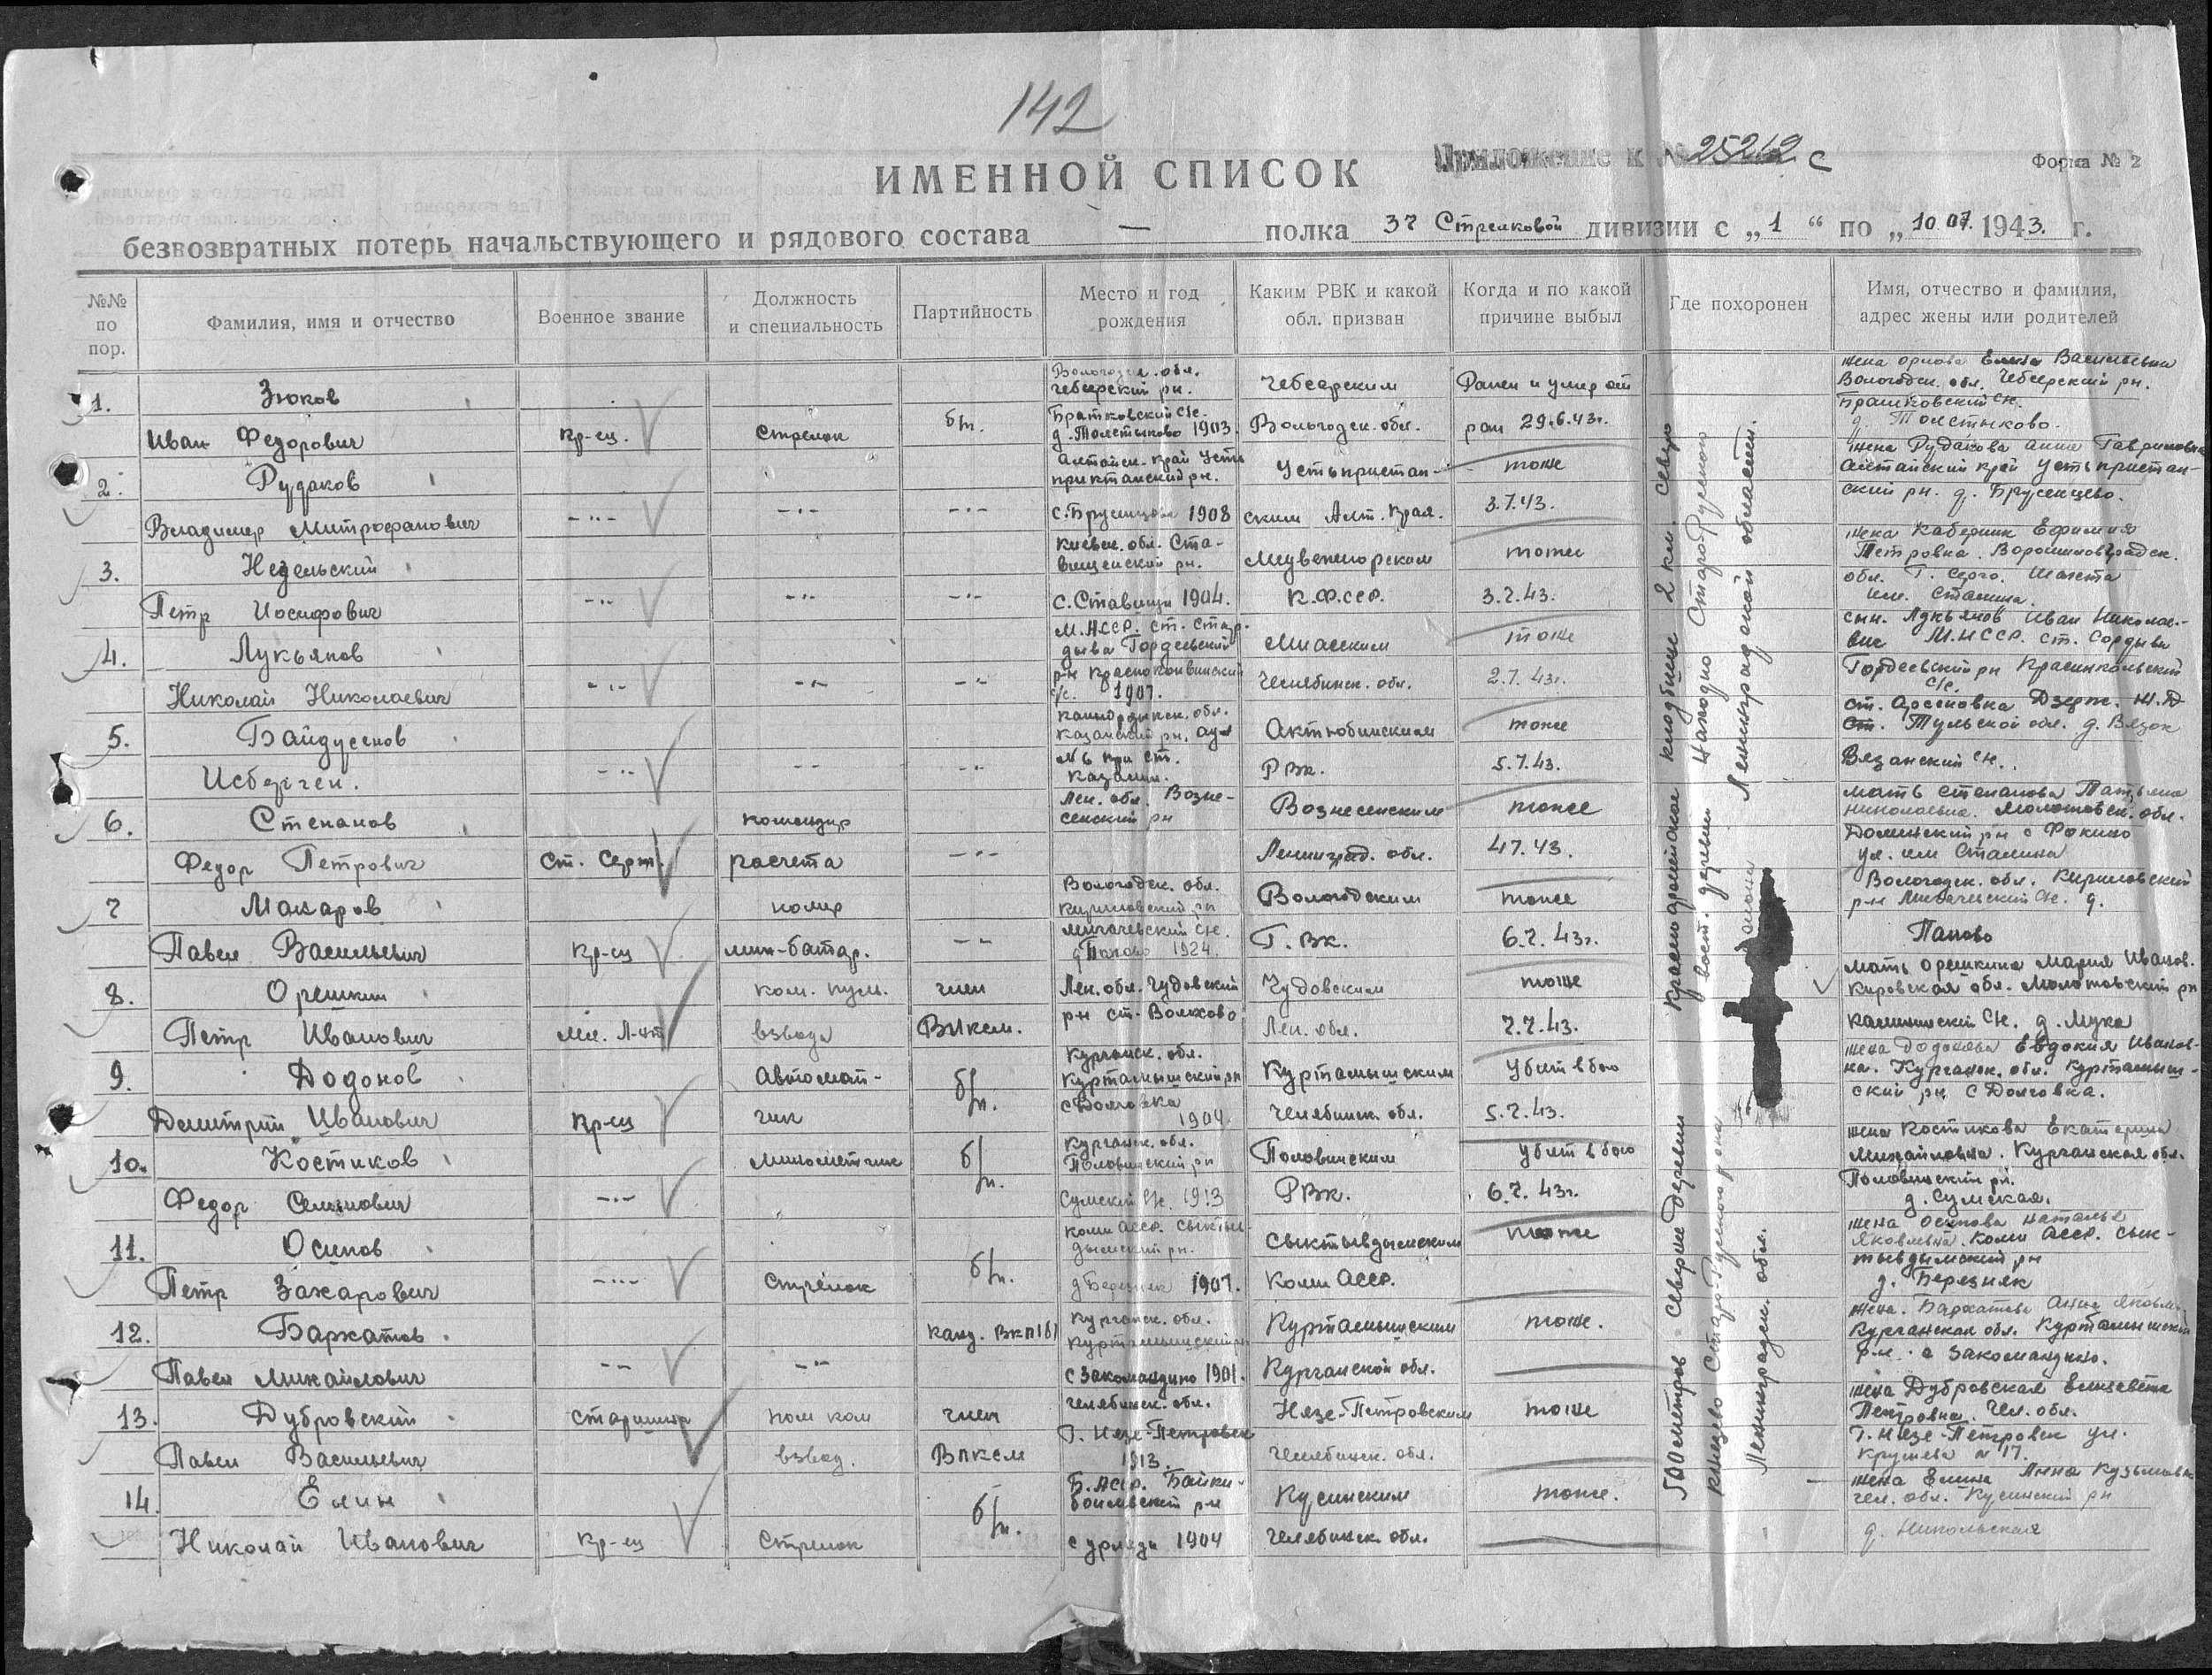 142
Приложение к № 25212 с
Форма № 2
ИМЕННОЙ СПИСОК
безвозвратных потерь начальствующего и рядового состава — полка 37 Стрелковой дивизии с „1 “ по „10.07. 1943. г.
№№ по пор.
Фамилия, имя и отчество
Военное звание
Должность и специальность
Партийность
Место и год рождения
Каким РВК и какой обл. призван
Когда и по какой причине выбыл
Где похоронен
Имя, отчество и фамилия, адрес жены или родителей
1.
Зюков
Иван Федорович
Кр-ец.
Стрелок
б/п.
Вологодск. обл.
Чебсарский рн.
Братковский с/с.
д. Толстыково 1903.
Чебсарским
Вологодск. обл.
Ранен и умер от
ран 29.6.43г.
жена Орлова Елена Васильевна
Вологодск. обл. Чебсарский рн.
с/с.
д. Толстыково.
2.
Рудаков
Владимир Митрофанович
-"-
-"-
-"-
Алтайск. край Усть
пристанский рн.
1908
Устьпристан-
ским Алт. края.
тоже
3.7.43.
жена Рудакова Анна Гавриловна
Алтайский край Устьпристан-
ский рн. д. Брусенцево.
3.
Недельский
Петр Иосифович
-"-
-"-
-"-
Киевск. обл. Ста-
вищенский рн.
с. Ставищи 1904.
Медвежьгорским
К.Ф.ССР.
тоже
3.7.43.
жена Каберник Ефимия
Петровна. Ворошиловградск.
обл. Г. Серго. Шахта
им. Сталина.
4.
Лукьянов
Николай Николаевич
-"-
-"-
-"-
М.АССР. ст.
Гордеевский
рн
с/с. 1907.
Миасским
Челябинск. обл.
тоже
2.7.43г.
сын. Лукьянов Иван Николае-
вич М.АССР. ст.
Гордеевский рн
с/с.
5.
Байдусенов
-"-
-"-
-"-
обл.
Казалинский рн. аул
№ 6 при ст.
Казалин.
Актюбинским
РВк.
тоже
5.7.43.
Дзерж. Ж.Д
Тульской обл. д. Вязок
Вязанский с/с.
6.
Степанов
Федор Петрович
Ст. Серж.
командир
расчета
-"-
Лен. обл. Возне-
сенский рн
Вознесенским
Ленинград. обл.
тоже
4.7.43.
мать Степанова Татьяна
Николаевна. Молотовск. обл.
рн с Фокино
ул. им Сталина
7
Макаров
Павел Васильевич
Кр-ец
номер
мин-батар.
-"-
Вологодск. обл.
Кирилловский рн
с/с.
д Попово 1924.
Вологодским
Г.Вк.
тоже
6.7.43г.
Вологодск. обл. Кирилловский
р-н с/с. д.
Попово
8.
Орешкин
Петр Иванович
Мл. Л-нт
ком. пул.
взвода
член
ВЛКСМ.
Лен. обл. Чудовский
рн ст. Волхово
Чудовским
Лен. обл.
тоже
7.7.43.
мать Орешкина Мария Иванов.
Кировская обл. Молотовский рн
с/с. д. Мука
9.
Додонов
Дмитрий Иванович
Кр-ец
Автомат-
чик
б/п.
Курганск. обл.
Куртамышский рн
с Долговка
1904.
Куртамышским
Челябинск. обл.
Убит в бою
5.7.43.
жена Додонова Евдокия Иванов-
на. Курганск. обл. Куртамыш-
ский рн с Долговка.
10.
Костиков
Федор Семенович
-"-
Минометчик
б/п.
Курганск. обл.
Половинский рн
Сумский с/с. 1913
Половинским
РВк.
Убит в бою
6.7.43г.
жена Костикова Екатерина
Михайловна. Курганская обл.
Половинский рн.
д. Сумская.
11.
Осипов
Петр Захарович
-"-
Стрелок
б/п.
Коми АССР. Сыктыв-
дымский рн.
д Березняк 1907.
Сыктывдымским
Коми АССР.
тоже
жена Осипова Наталья
Яковлевна. Коми АССР. Сык-
тывдымский рн
д. Березняк
12.
Бархатов
Павел Михайлович
-"-
-"-
Канд. ВКП(б)
Курганск. обл.
Куртамышский рн
с Закомандино 1901.
Куртамышским
Курганской обл.
тоже.
жена. Бархатова Анна Яковл.
Курганская обл. Куртамышский
р-н. с Закомандино.
13.
Дубровский
Павел Васильевич
старшина
пом ком
взвод.
член
ВЛКСМ
Челябинск. обл.
Г. Нязе-Петровск
1913.
Нязе-Петровским
Челябинск. обл.
тоже
жена Дубровская Елизавета
Петровна. Чел. обл.
Г. Нязе-Петровск ул.
№ 17.
14.
Елин
Николай Иванович
Кр-ец
Стрелок
б/п.
Б.АССР. Байки-
башевский рн
1904
Кусинским
Челябинск. обл.
тоже.
жена Елина Анна Кузьмовна
Чел. обл. Кусинский рн
д. Никольская
Красноармейское кладбище 2 км. северо
вост. деревни Находно Старо-Русского
Ленинградской области.
500 метров Севернее деревни
Старо-Русского района
Ленинградск. обл.